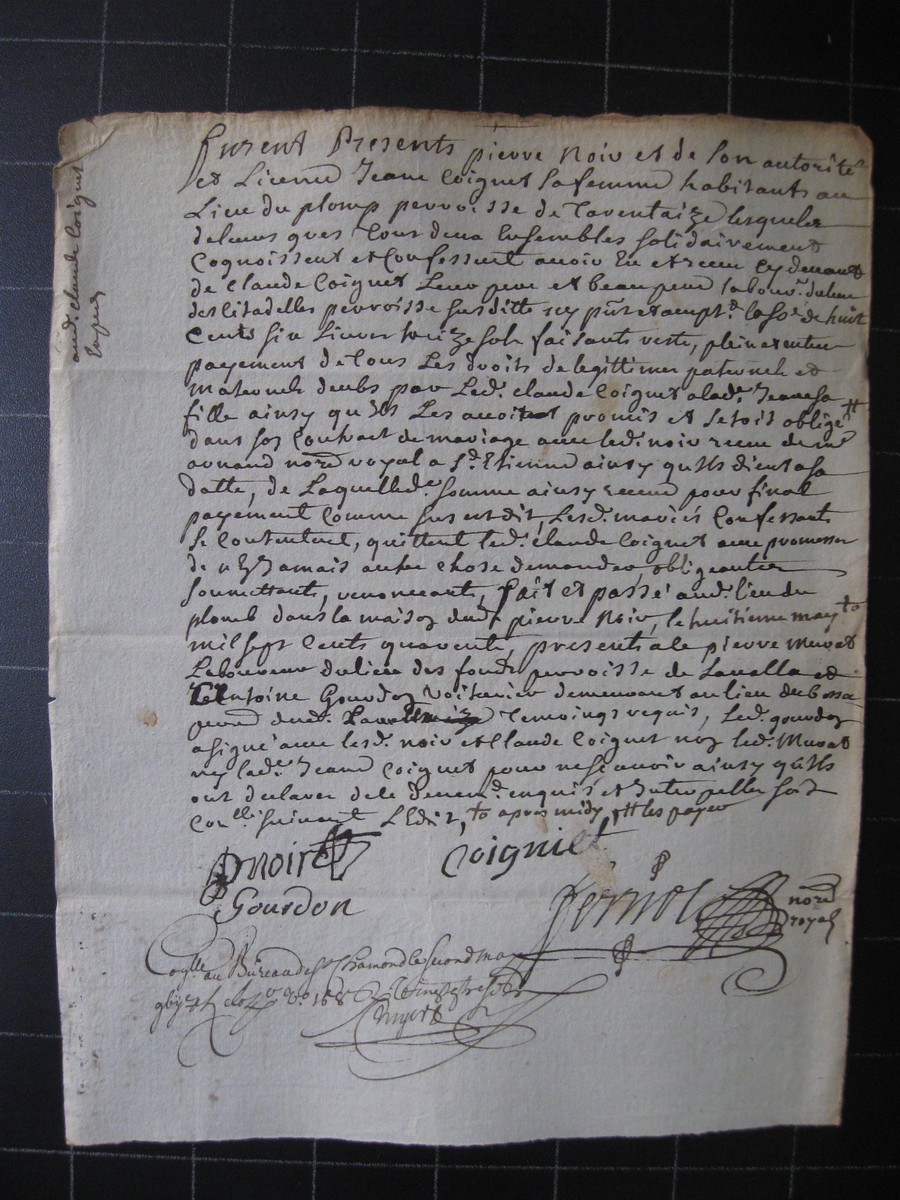 aud. claude Coignet
Furent Presents pierre noir et de son autorité
et Licence Jeane Coignet sa femme habitants au
Lieu du plomp perroisse de Taventaize lesquels
de leurs grés tous deux Ensembles solidairement
Cognoissent et Confessent avoir Eu et receu cy devant
de Claude Coignet Leur pere et beaupere labour. du lieu
des Citadelles perroisse susditte icy pnt et accept. la So.e de huit
Cents six Livres treize sols faisants reste, plein et entier
payement de tous Les droits de legittime paternels et
maternels deubs par Led. claude Coignet a lad. Jeane sa
fille ainsy qu'ils Les avoit promis et setoit obligé
dans son Contract de mariage avec led. noir receu de me
arnaud nore royal a St. Etienne ainsy qu'ils dient a sa
datte, de Laquelle d. somme ainsy receue pour final
payement comme sus est dit, Lesd. mariés Confessants
se Contentent, quittent led. claude Coignet avec promesse
de n'en Jamais autre chose demander obligeant
soumettants, renonceants, fait et passé aud. lieu du
plomb dans la maison dud. pierre Noir, le huitieme may
mil sept Cents quarente, presents a le pierre Murat
Laboureur du lieu des fonds perroisse de Lavalla et
antoine Gourdon Voiturier demeurant au lieu du
dud. temoings requis, Led. gourdon
a signé avec lesd. noir et Claude Coignet non led. Murat
ny lad. Jeane Coignet pour ne scavoir ainsy qu'ils
ont declarer de ce enquis et Interpellés soit
Con.llé suivant L'Edit, apres midy les payer
pnoir
Coigniet
Gourdon
fornioL
nore
royal
Con.llé au Bureau de St Chamond le second may